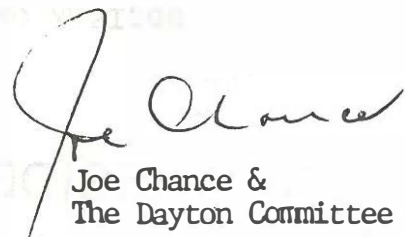 Joe Chance
Joe Chance &
The Dayton Committee